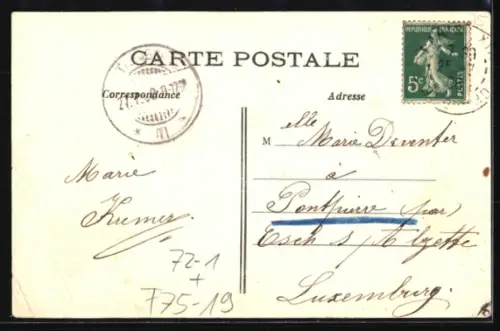 CARTE POSTALE
REPUBLIQUE FRANÇAISE
5c
POSTES
Correspondance
Adresse
Melle Marie Deventer
à
Pontpierre (par)
Esch s/ Alzette
Luxemburg.
Marie
Kremer
72-1
+
F75-19